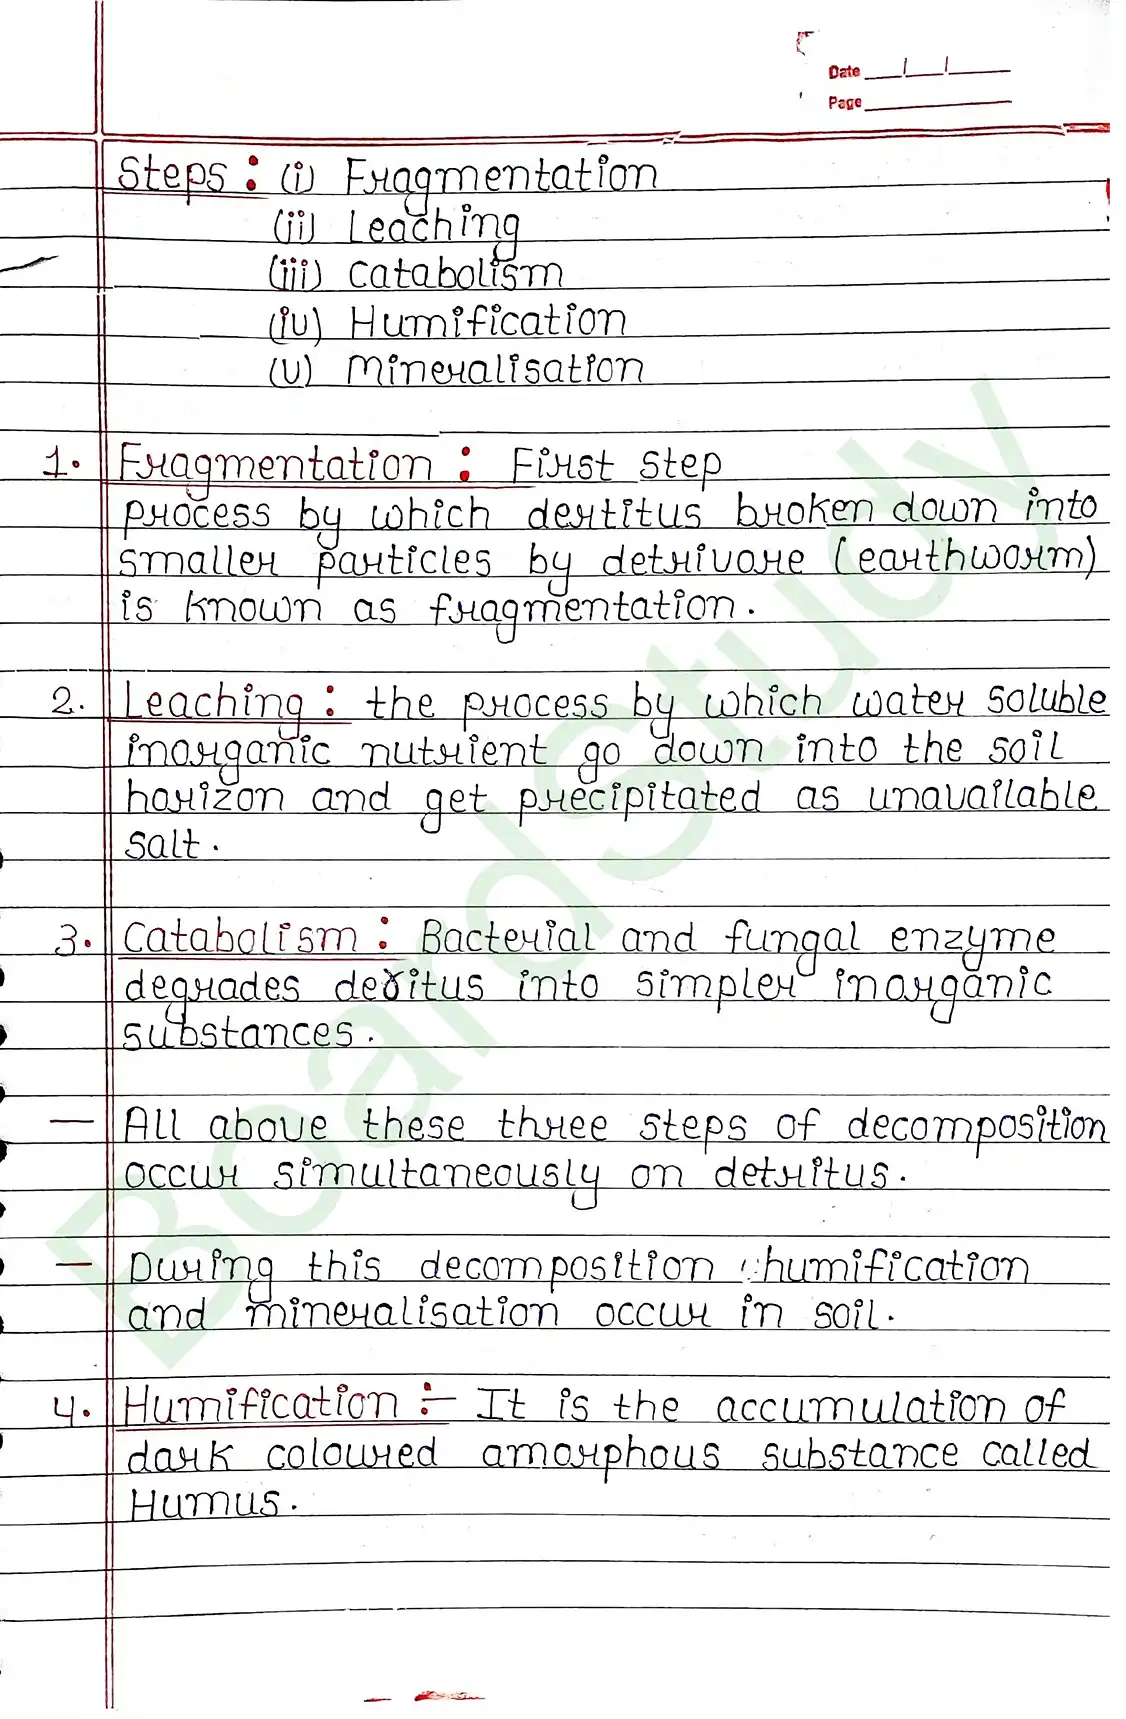 Date
Page
Steps : (i) Fragmentation
(ii) Leaching
(iii) Catabolism
(iv) Humification
(v) Mineralisation
1. Fragmentation : First step
process by which dertitus broken down into
smaller particles by detrivore (earthworm)
is known as fragmentation.
2. Leaching : the process by which water soluble
inorganic nutrient go down into the soil
horizon and get precipitated as unavailable
salt.
3. Catabolism : Bacterial and fungal enzyme
degrades deritus into simpler inorganic
substances.
— All above these three steps of decomposition
occur simultaneously on detritus.
— During this decomposition humification
and mineralisation occur in soil.
4. Humification :- It is the accumulation of
dark coloured amorphous substance called
Humus.
BoardStudy